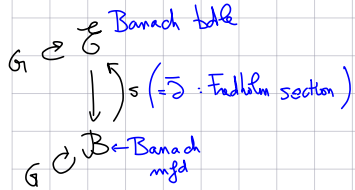 Banach bdle
G ↻ ℰ
s (= ∂̄ : Fredholm section)
G ↻ B ← Banach
mfd